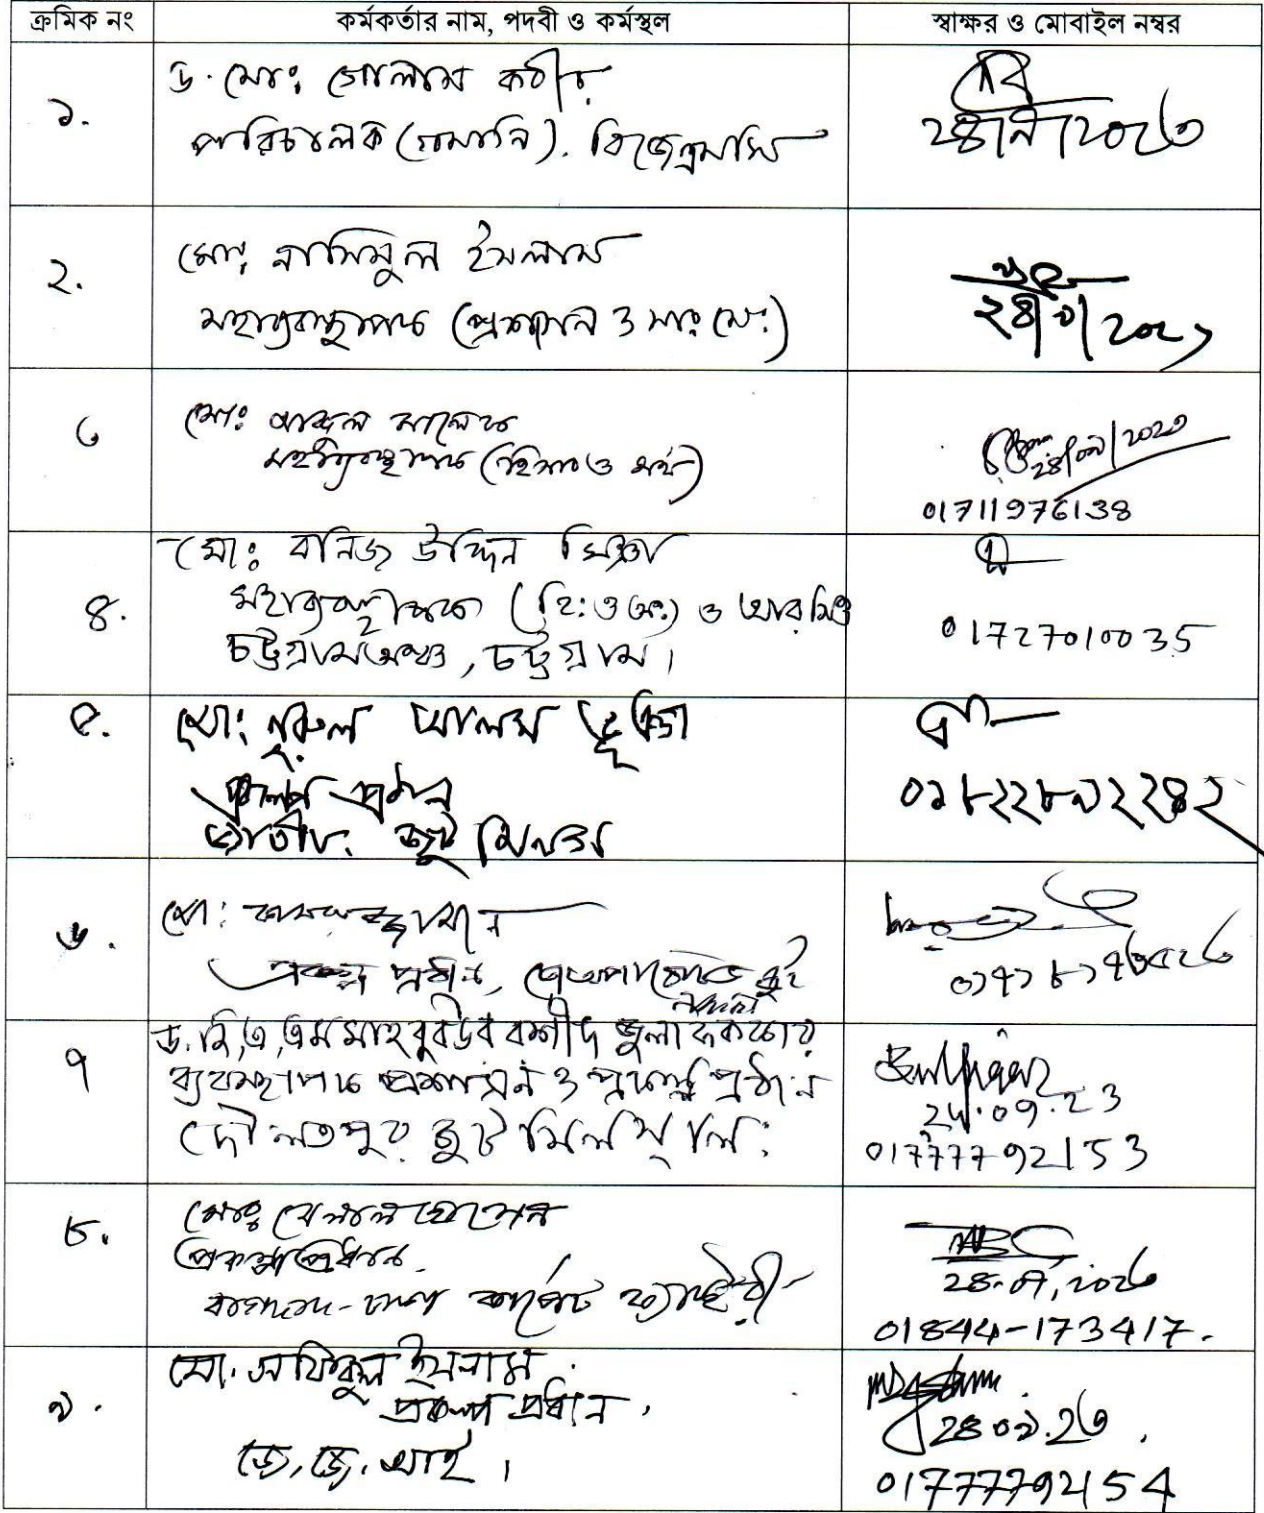 ক্রমিক নং কর্মকর্তার নাম, পদবী ও কর্মস্থল স্বাক্ষর ও মোবাইল নম্বর
১. ড. মোঃ গোলাম কবীর
পরিচালক
২৪/৯/২০২৩
২. মোঃ নাসিমুল ইসলাম
মহাব্যবস্থাপক (প্রশাসন ও
২৪/৯/২০২৩
৩ মোঃ আব্দুল মালেক
মহাব্যবস্থাপক (হিসাব ও অর্থ)
২৪/০৯/২০২৩
01711976138
৪. মোঃ বনিজ উদ্দিন মিঞা
মহাব্যবস্থাপক (হিঃ ও অঃ) ও
চট্টগ্রাম অঞ্চল, চট্টগ্রাম।
01727010035
৫. মোঃ নুরুল আলম ভূঁঞা
প্রকল্প প্রধান
জাতীয় জুট মিলস
০১৮২২৮৯২২৪২
৬. মোঃ কামরুজ্জামান
প্রকল্প প্রধান,
৭ ড.
ব্যবস্থাপক প্রশাসন ও প্রকল্প প্রধান
দৌলতপুর জুট মিলস্ লিঃ
24.09.23
01777792153
৮. মোঃ বেলাল হোসেন
প্রকল্প প্রধান
কার্পেট ফ্যাক্টরী
01844-173417.
৯. মো. সফিকুল ইসলাম.
প্রকল্প প্রধান.
জে, জে. আই।
২৪ ০৯.২৩.
01777792154